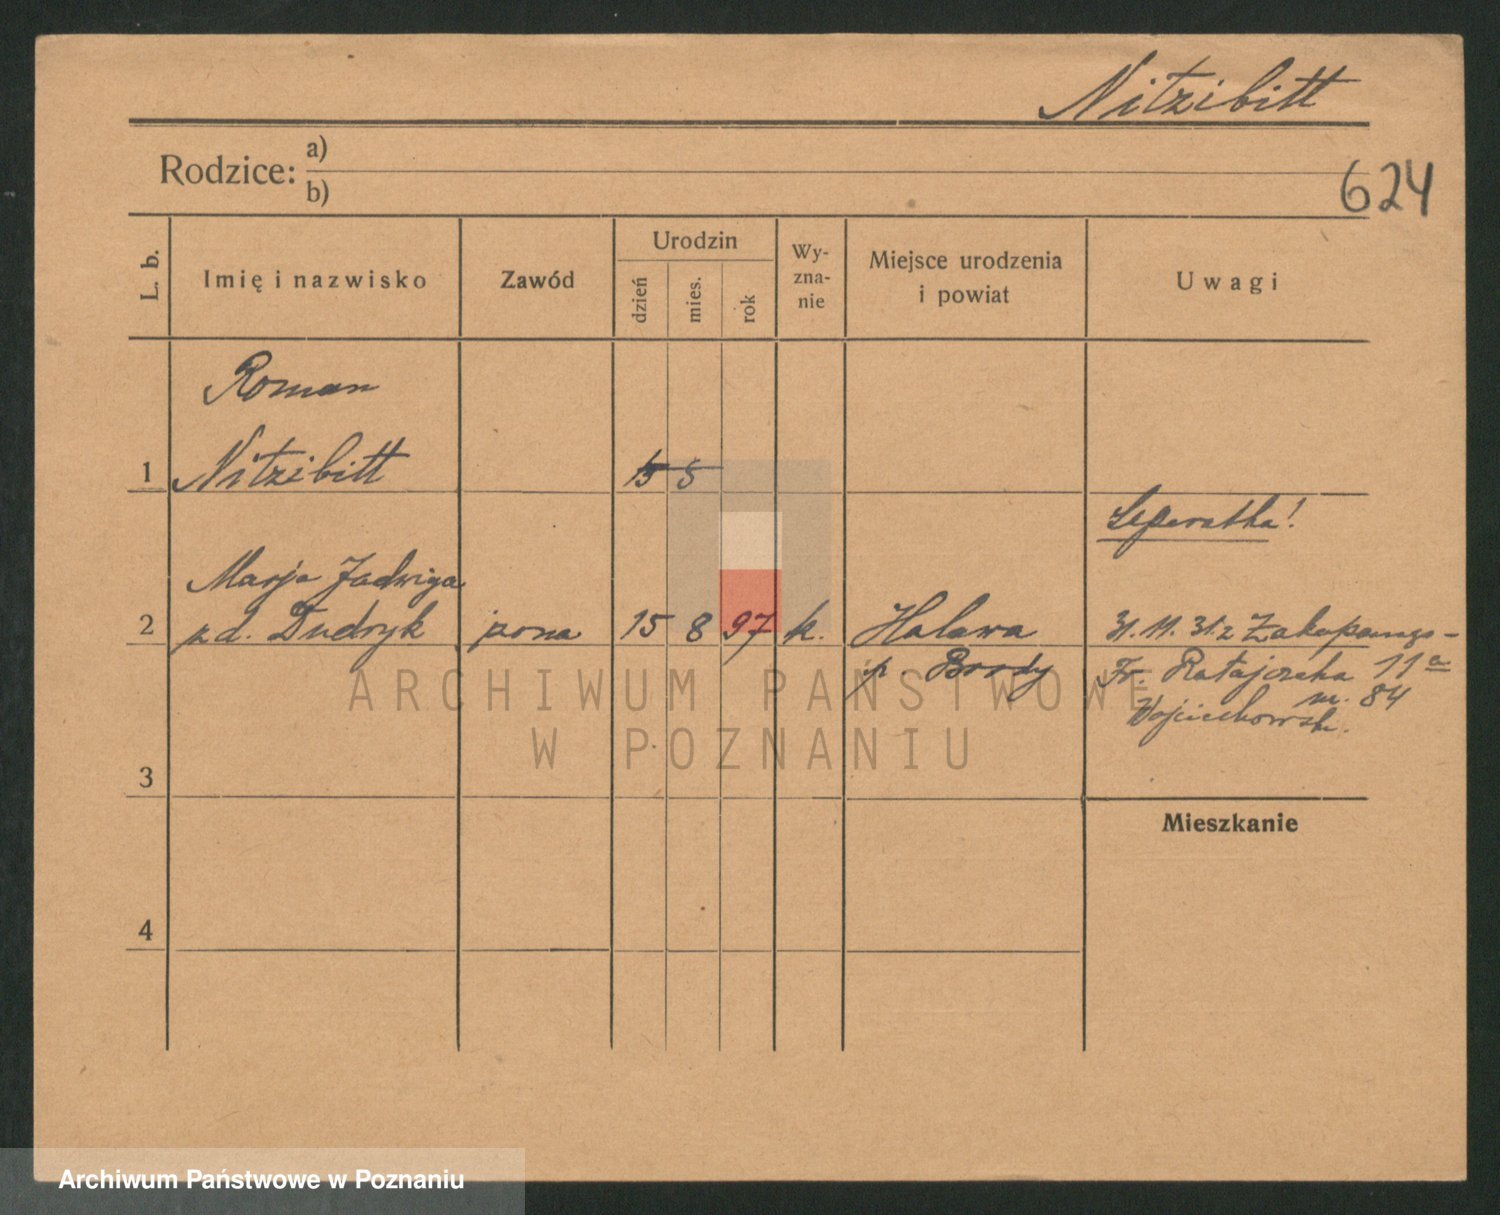 Nitzibitt
Rodzice: a)
b)
624
L. b.
Imię i nazwisko
Zawód
Urodzin
dzień
mies.
rok
Wy-
zna-
nie
Miejsce urodzenia
i powiat
Uwagi
Roman
1 Nitzibitt 15 5
Separatka!
Marja Jadwiga
2 z d. Dudryk żona 15 8 97 k. Halawa 31. 11. 31. z Zakopanego -
p. Brody Fr. Ratajczaka 11a
m. 84
Wojciechowsk.
ARCHIWUM PAŃSTWOWE
W POZNANIU
3
Mieszkanie
4
Archiwum Państwowe w Poznaniu